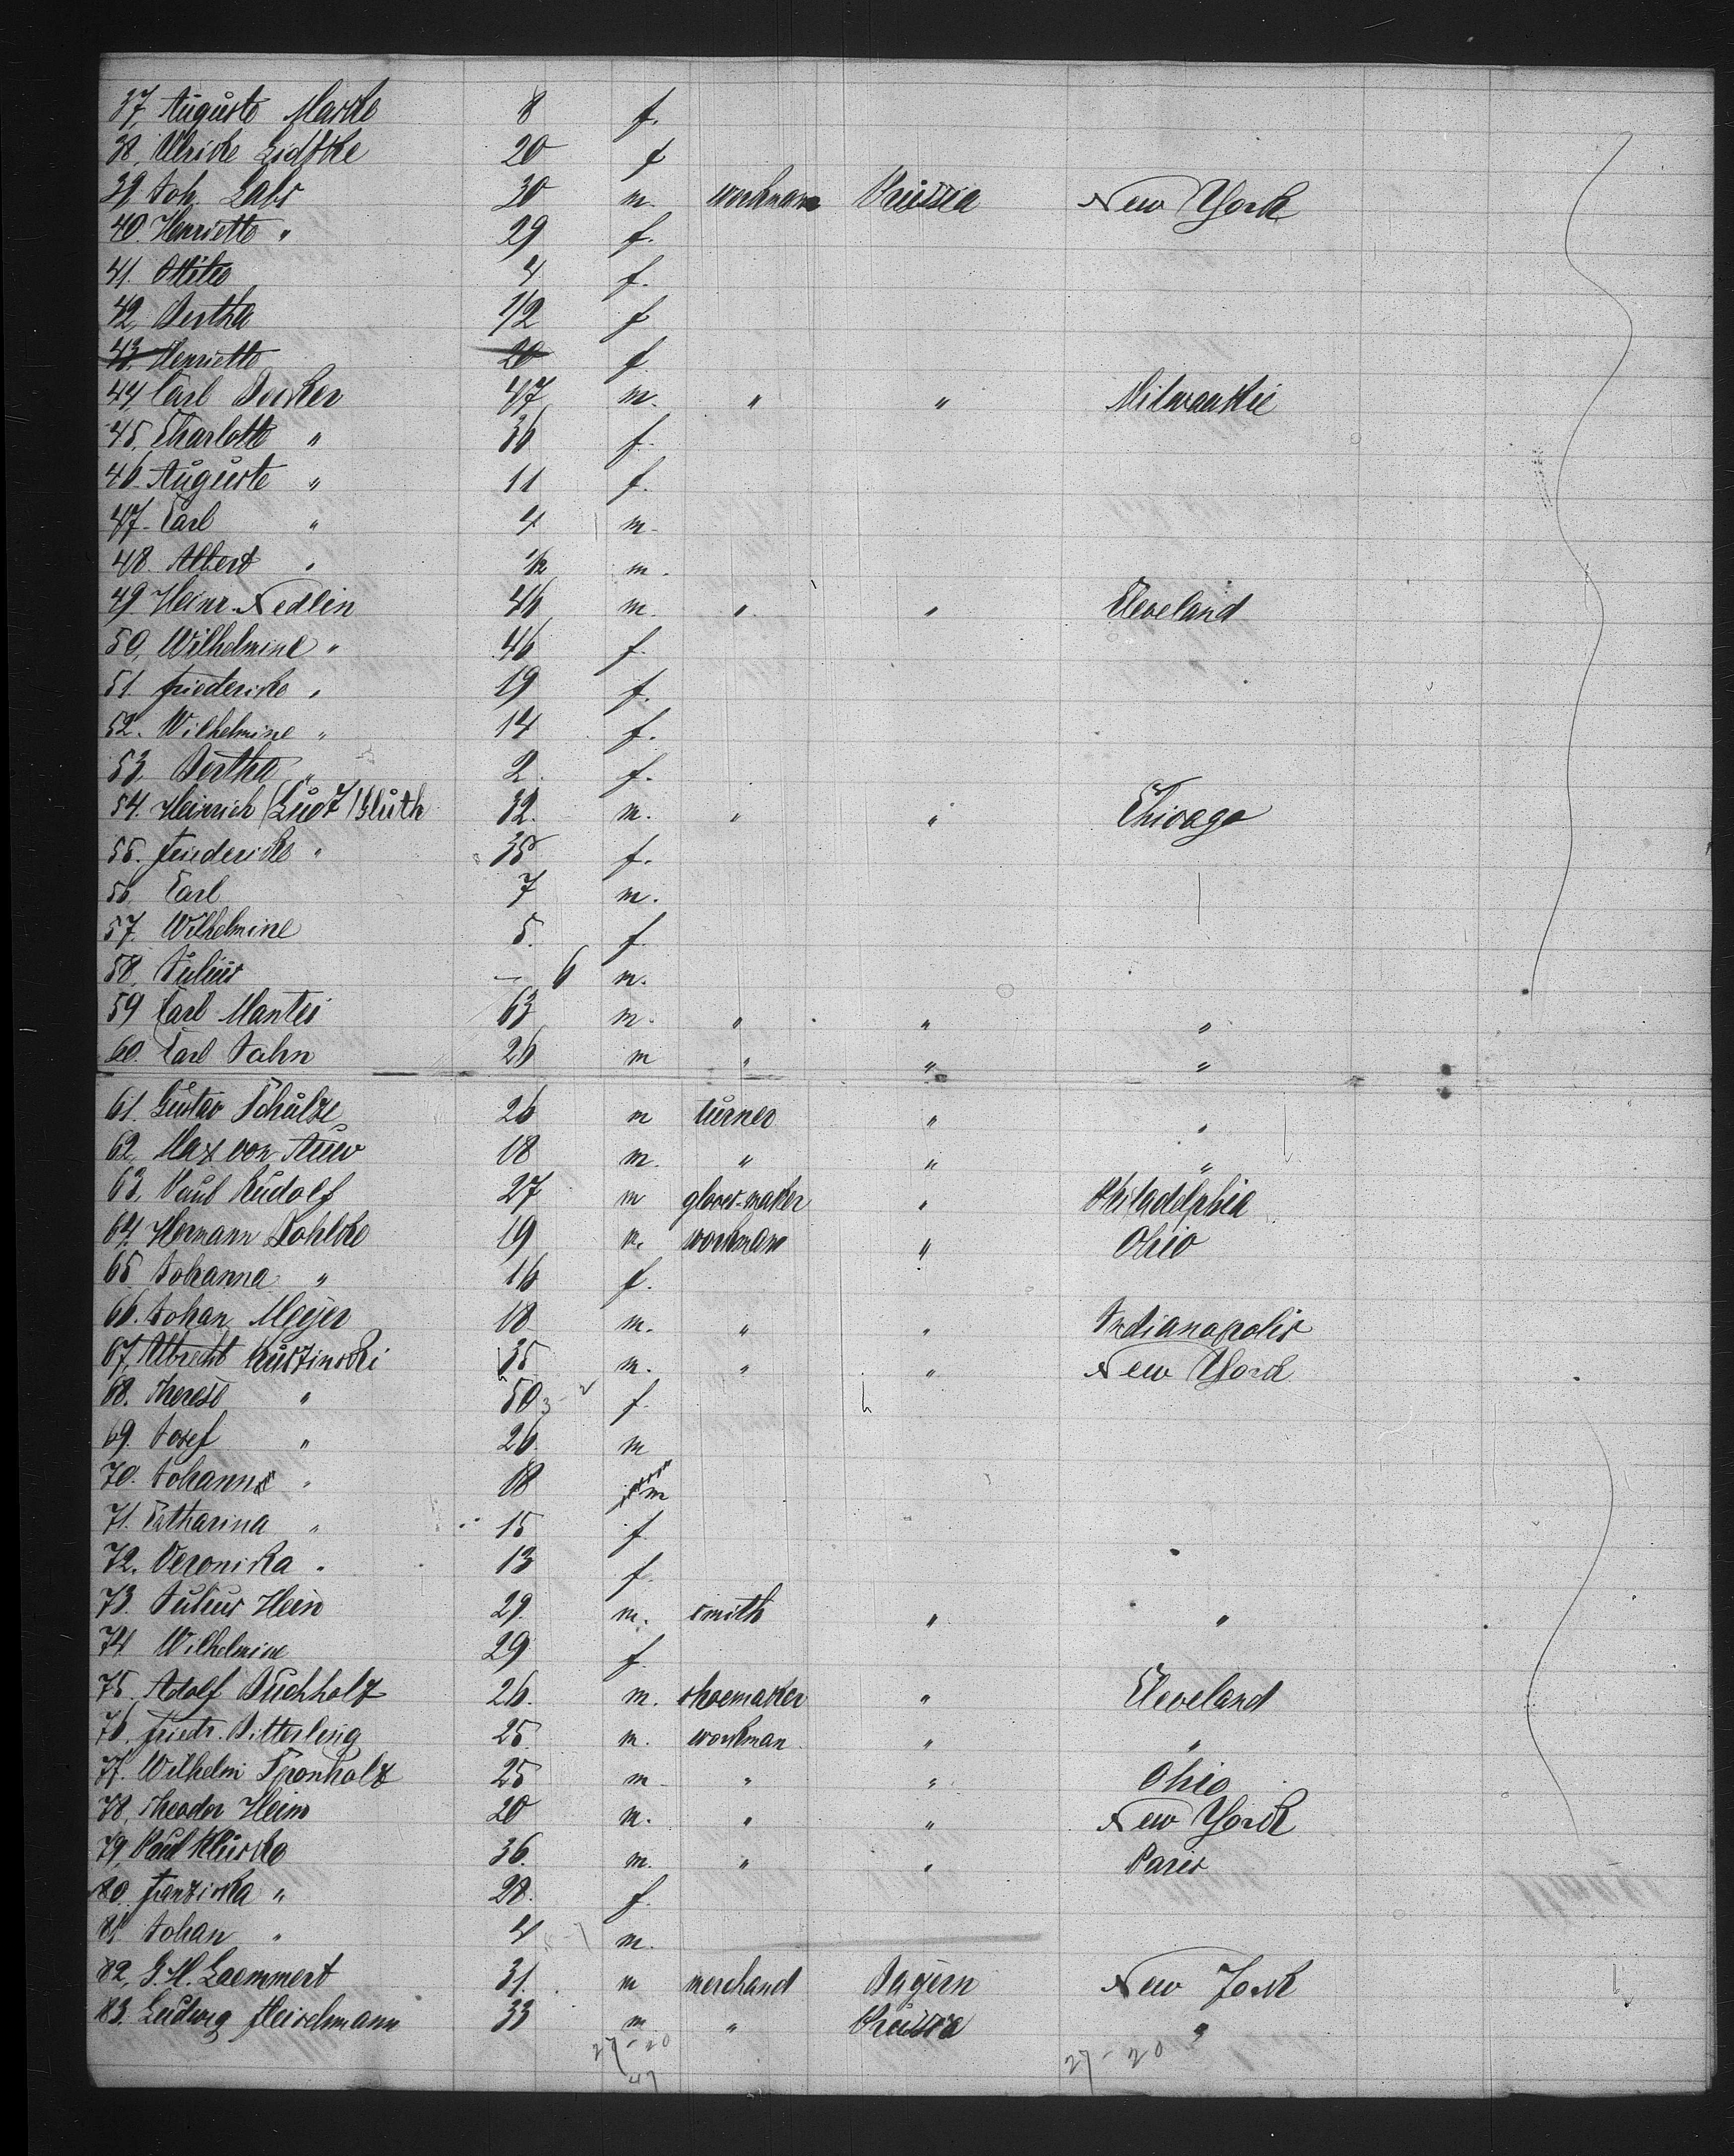 37. Auguste Maske 8 f.
38. Ulricke Lidtke 20 f
39. Joh. Labs 30 m. workman Prussia New York
40. Henriette " 29 f.
41. Ottilie 4 f.
42. Bertha 1/2 f
43. Henriette 20 f
44. Carl Becker 47 m. " " Milwaukie
45. Charlotte " 36 f.
46. Auguste " 11 f.
47. Carl " 4 m.
48. Albert " 1/2 m.
49. Heinr. Nedlin 46 m. " " Cleveland
50. Wilhelmine " 46 f.
51. Friedericke " 19 f.
52. Wilhelmine " 14 f.
53. Bertha " 2 f.
54. Heinrich ( ) Gluth 32. m. " " Chicago
55. Friedericke " 35 f.
56. Carl 7 m.
57. Wilhelmine 5. f
58. Julius — 6 m.
59 Carl Mantei 63 m. " " "
60. Carl Jahn 26 m " " "
61. Gustav Schulze 26 m turner " "
62. Max von Auw 18 m. " " "
63. Paul Rudolf 27 m glover-maker " Philadelphia
64. Hermann Dahlke 19 m. workman " Ohio
65. Johanna " 16 f.
66. Johan Meyer 18 m. " " Indianapolis
67. Albrecht 35 m. " " New York
68. Therese " 50 f.
69. Josef " 26. m
70. Johann " 18 m
71. Catharina " 15 f
72. Veronika " 13 f.
73. Julius Hein 29. m. smith " "
74 Wilhelmine 29 f.
75. Adolf Buchholz 26. m. shoemaker " Cleveland
76. Friedr. Bitterling 25. m. workman " "
77. Wilhelm Fronholz 25 m " " Ohio
78. Theodor Heim 20 m. " " New York
79. Paul Kluska 36. m. " " Paris
80. Franziska " 28. f.
81. Johan " 4 m.
82. G. H. Laemmert 31. m merchand Bayern New York
83. Ludwig Fleischmann 33 m " Prussia "
27-20 27-20
47